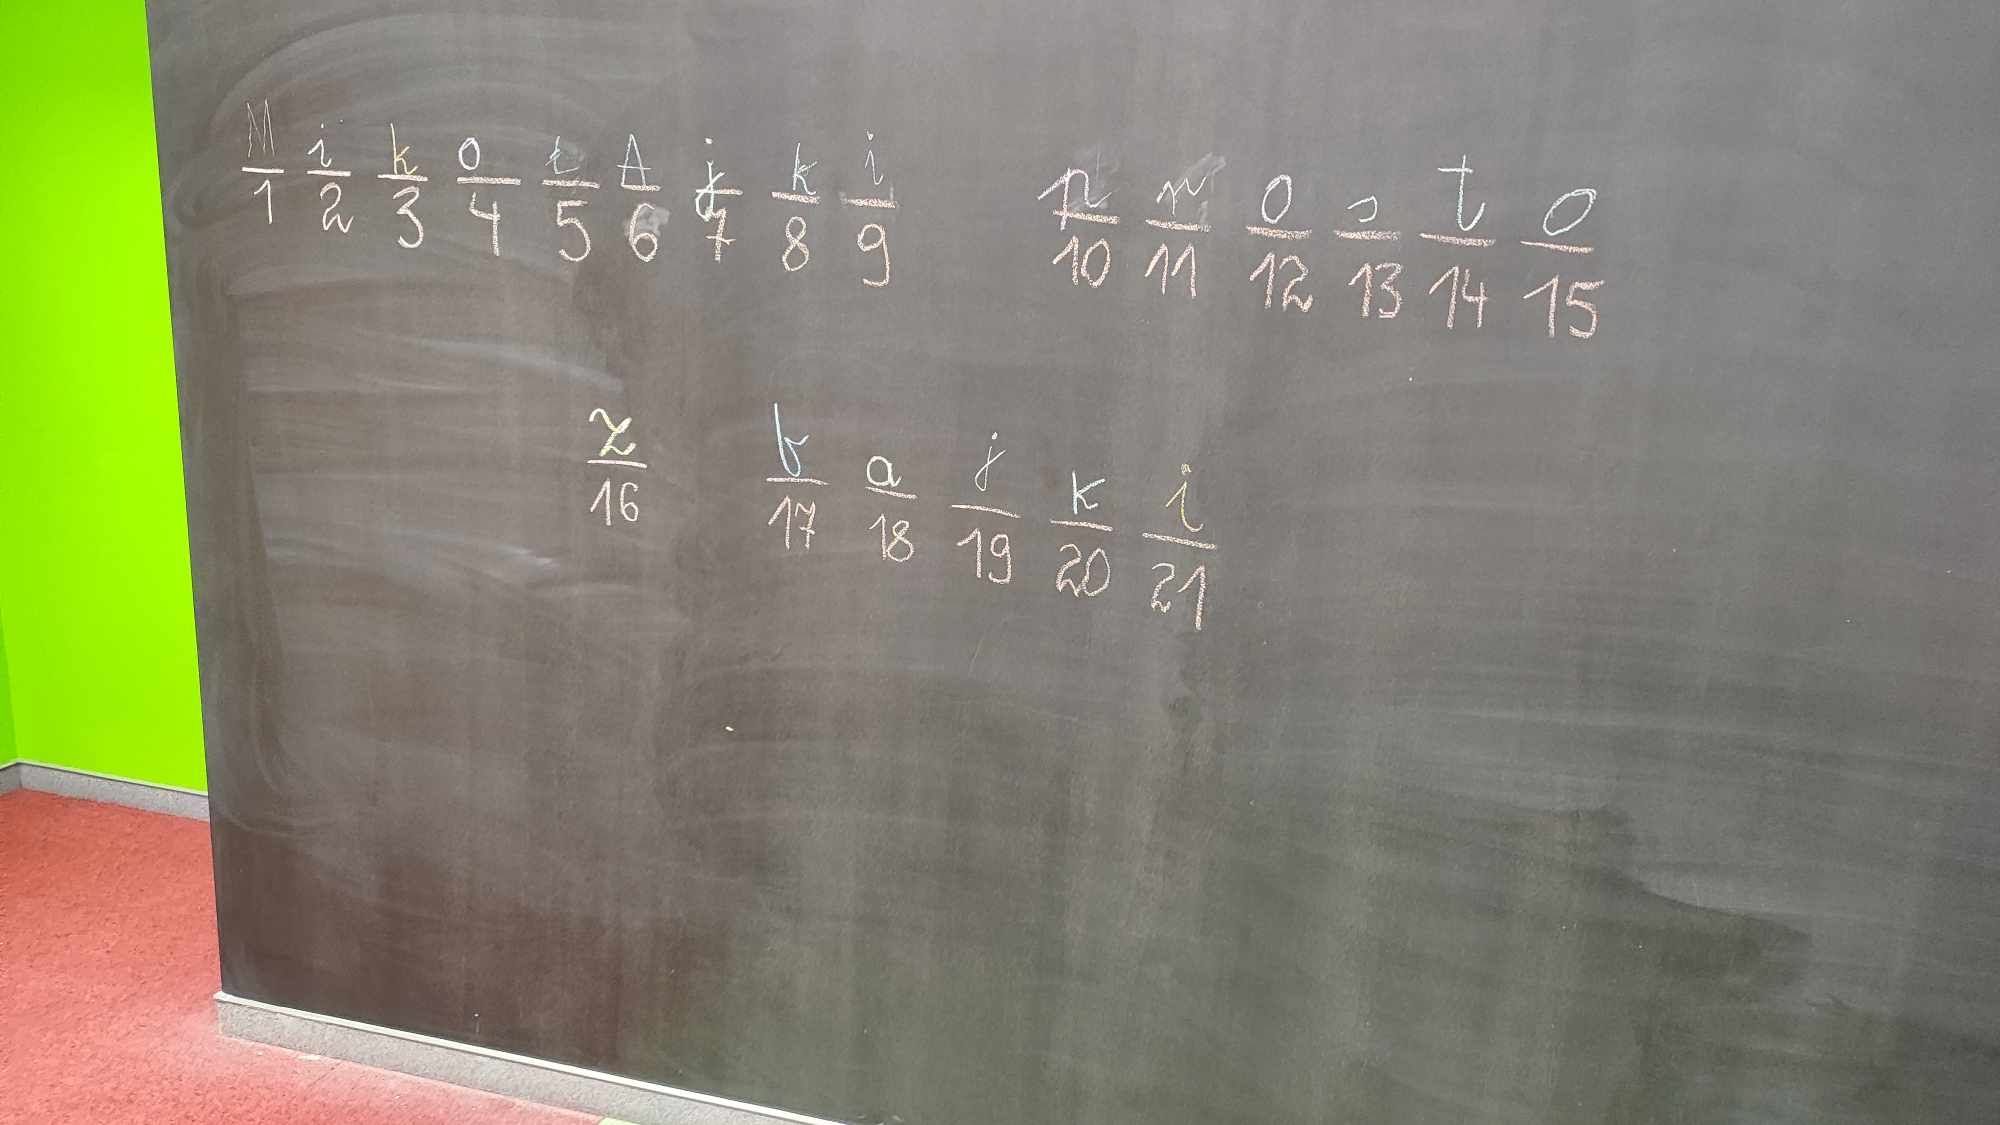 M i k o t A j k i n r o s t o
1 2 3 4 5 6 7 8 9 10 11 12 13 14 15
z b a j k i
16 17 18 19 20 21